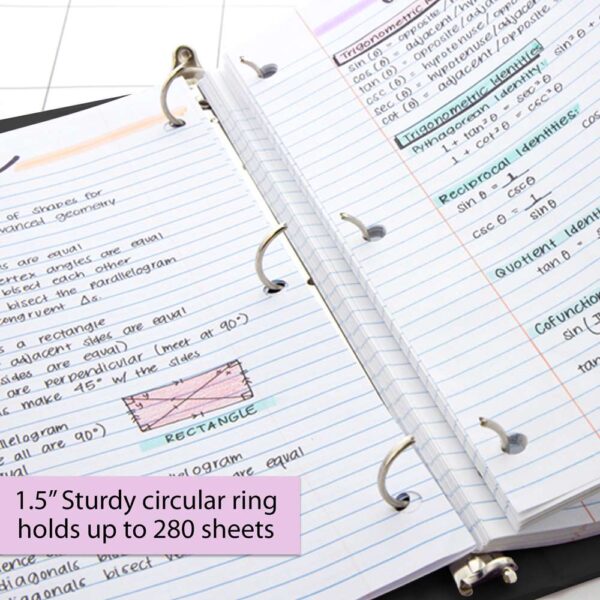 of shapes for
vanced geometry
are equal
vertex angles are equal
bisect each other
bisect the parallelogram
congruent Δs.
a rectangle
adjacent sides are equal
sides are equal)
are perpendicular (meet at 90°)
make 45° w/ the sides
RECTANGLE
llelogram
all are 90°)
elogram
are equal
diagonals bisect
Trigonometric
sin (θ) = opposite/
cos (θ) = adjacent/hy
tan (θ) = opposite/adj
csc (θ) = hypotenuse/oppo
sec (θ) = hypotenuse/adjacent
cot (θ) = adjacent/opposite
Trigonometric Identities
Pythagorean Identity:
sin²θ +
1 + tan²θ = sec²θ
1 + cot²θ = csc²θ
Reciprocal Identities:
sin θ = 1/cscθ
csc θ = 1/sinθ
Quotient Identit
tan θ =
Cofunction
sin(
tan
1.5” Sturdy circular ring
holds up to 280 sheets